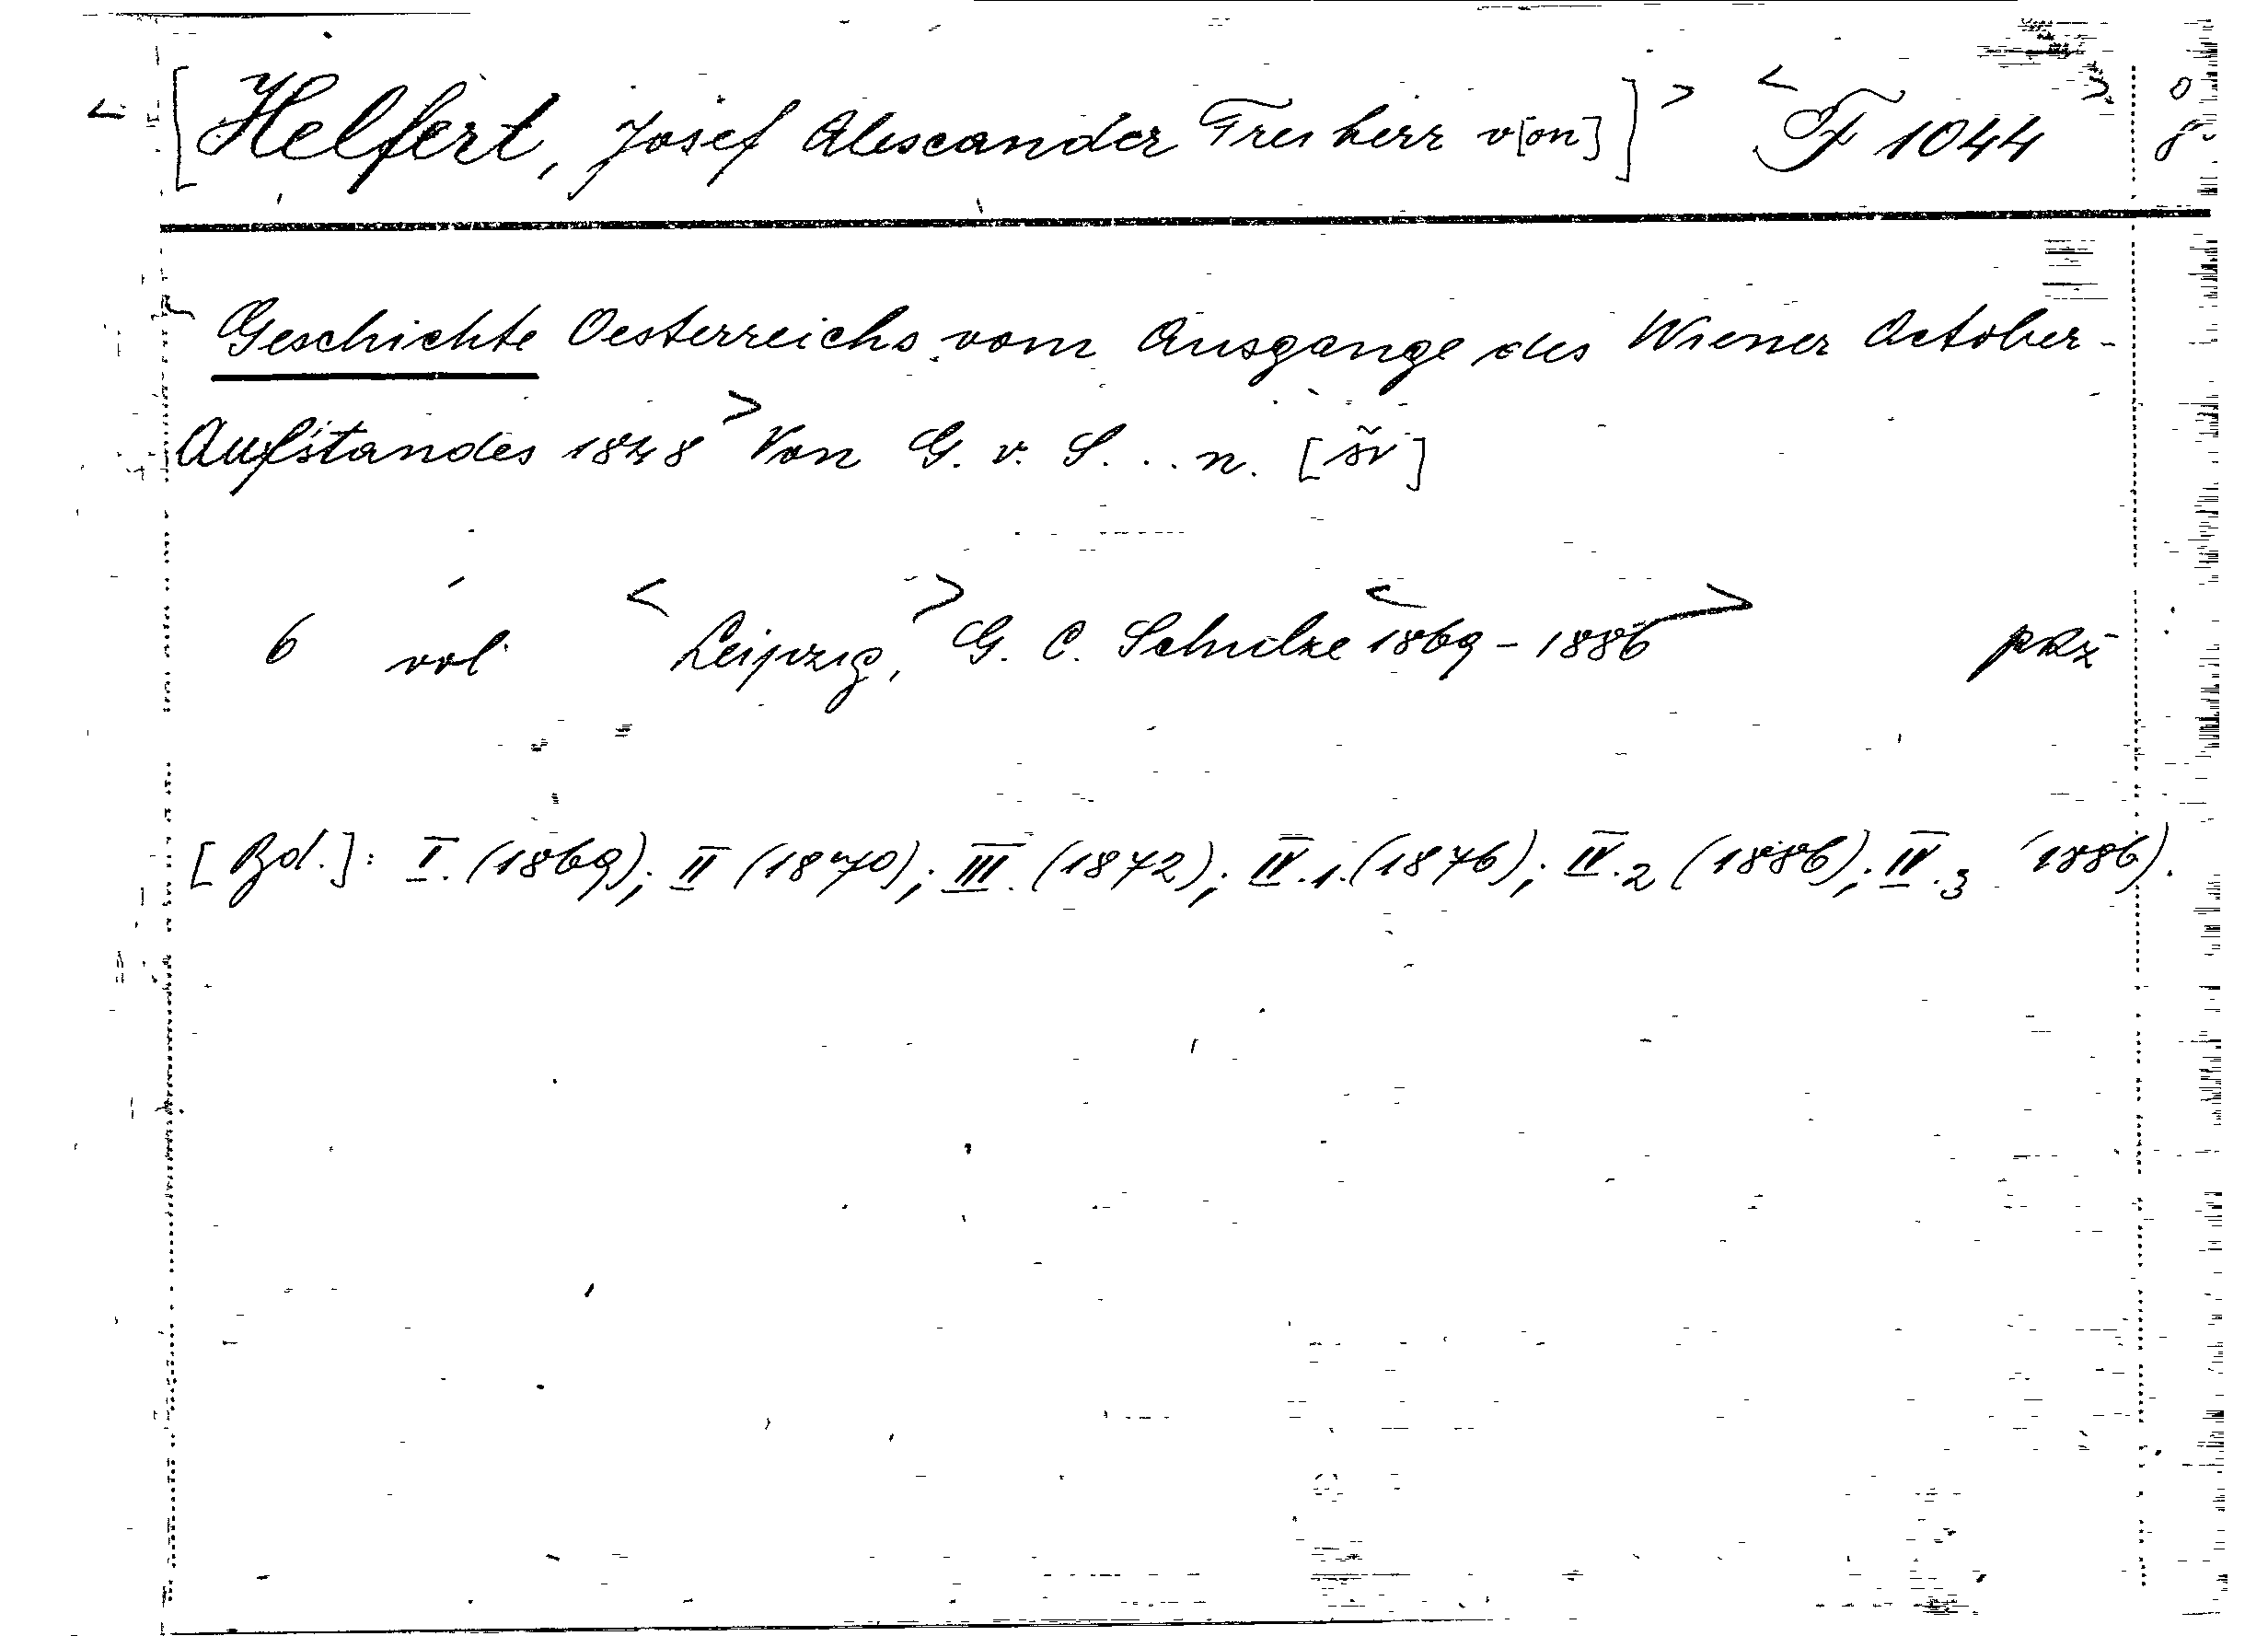 < [Helfert, Josef Alexander Freiherr v[on]] > < F 1044 >
Geschichte Oesterreichs vom Ausgange des Wiener October-
Aufstandes 1848 > Von G. v. S. . . n. [šv]
6 vol < Leipzig, > G. C. Schulze < 1869 - 1886 >
[Bd.]: I. (1869); II (1870); III. (1872); IV.1. (1876); IV.2 (1886); IV.3 (1886).